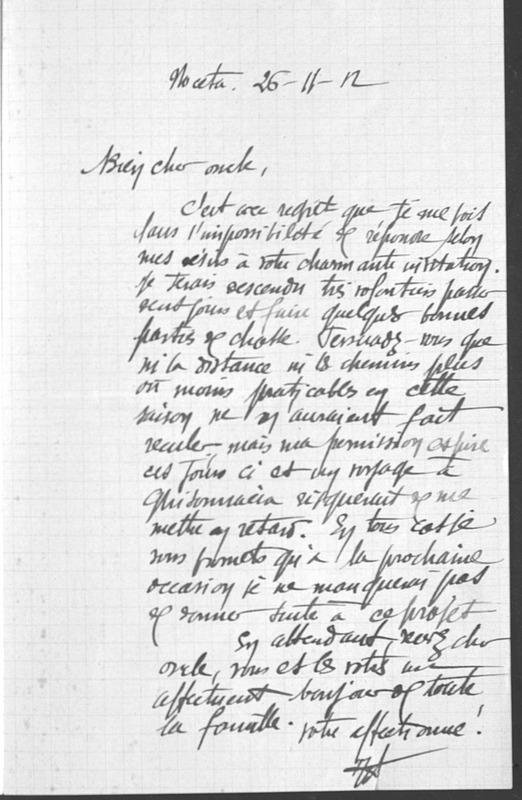 Noceta. 26-11-12
Bien cher oncle,
C'est avec regret que je me vois
dans l'impossibilité de répondre selon
mes désirs à votre charmante invitation.
Je serais descendu très volontiers passer
deux jours et faire quelques bonnes
parties de chasse. Persuadez-vous que
ni la distance ni les chemins plus
ou moins praticables en cette
saison ne m'auraient fait
reculer, mais ma permission expire
ces jours ci et un voyage à
Ghisonnaccia risquerait de me
mettre en retard. En tous cas je
vous promets qu'à la prochaine
occasion je ne manquerai pas
de donner suite à ce projet
En attendant, recevez cher
oncle, vous et les vôtres un
affectueux bonjour de toute
la famille. votre affectionné!